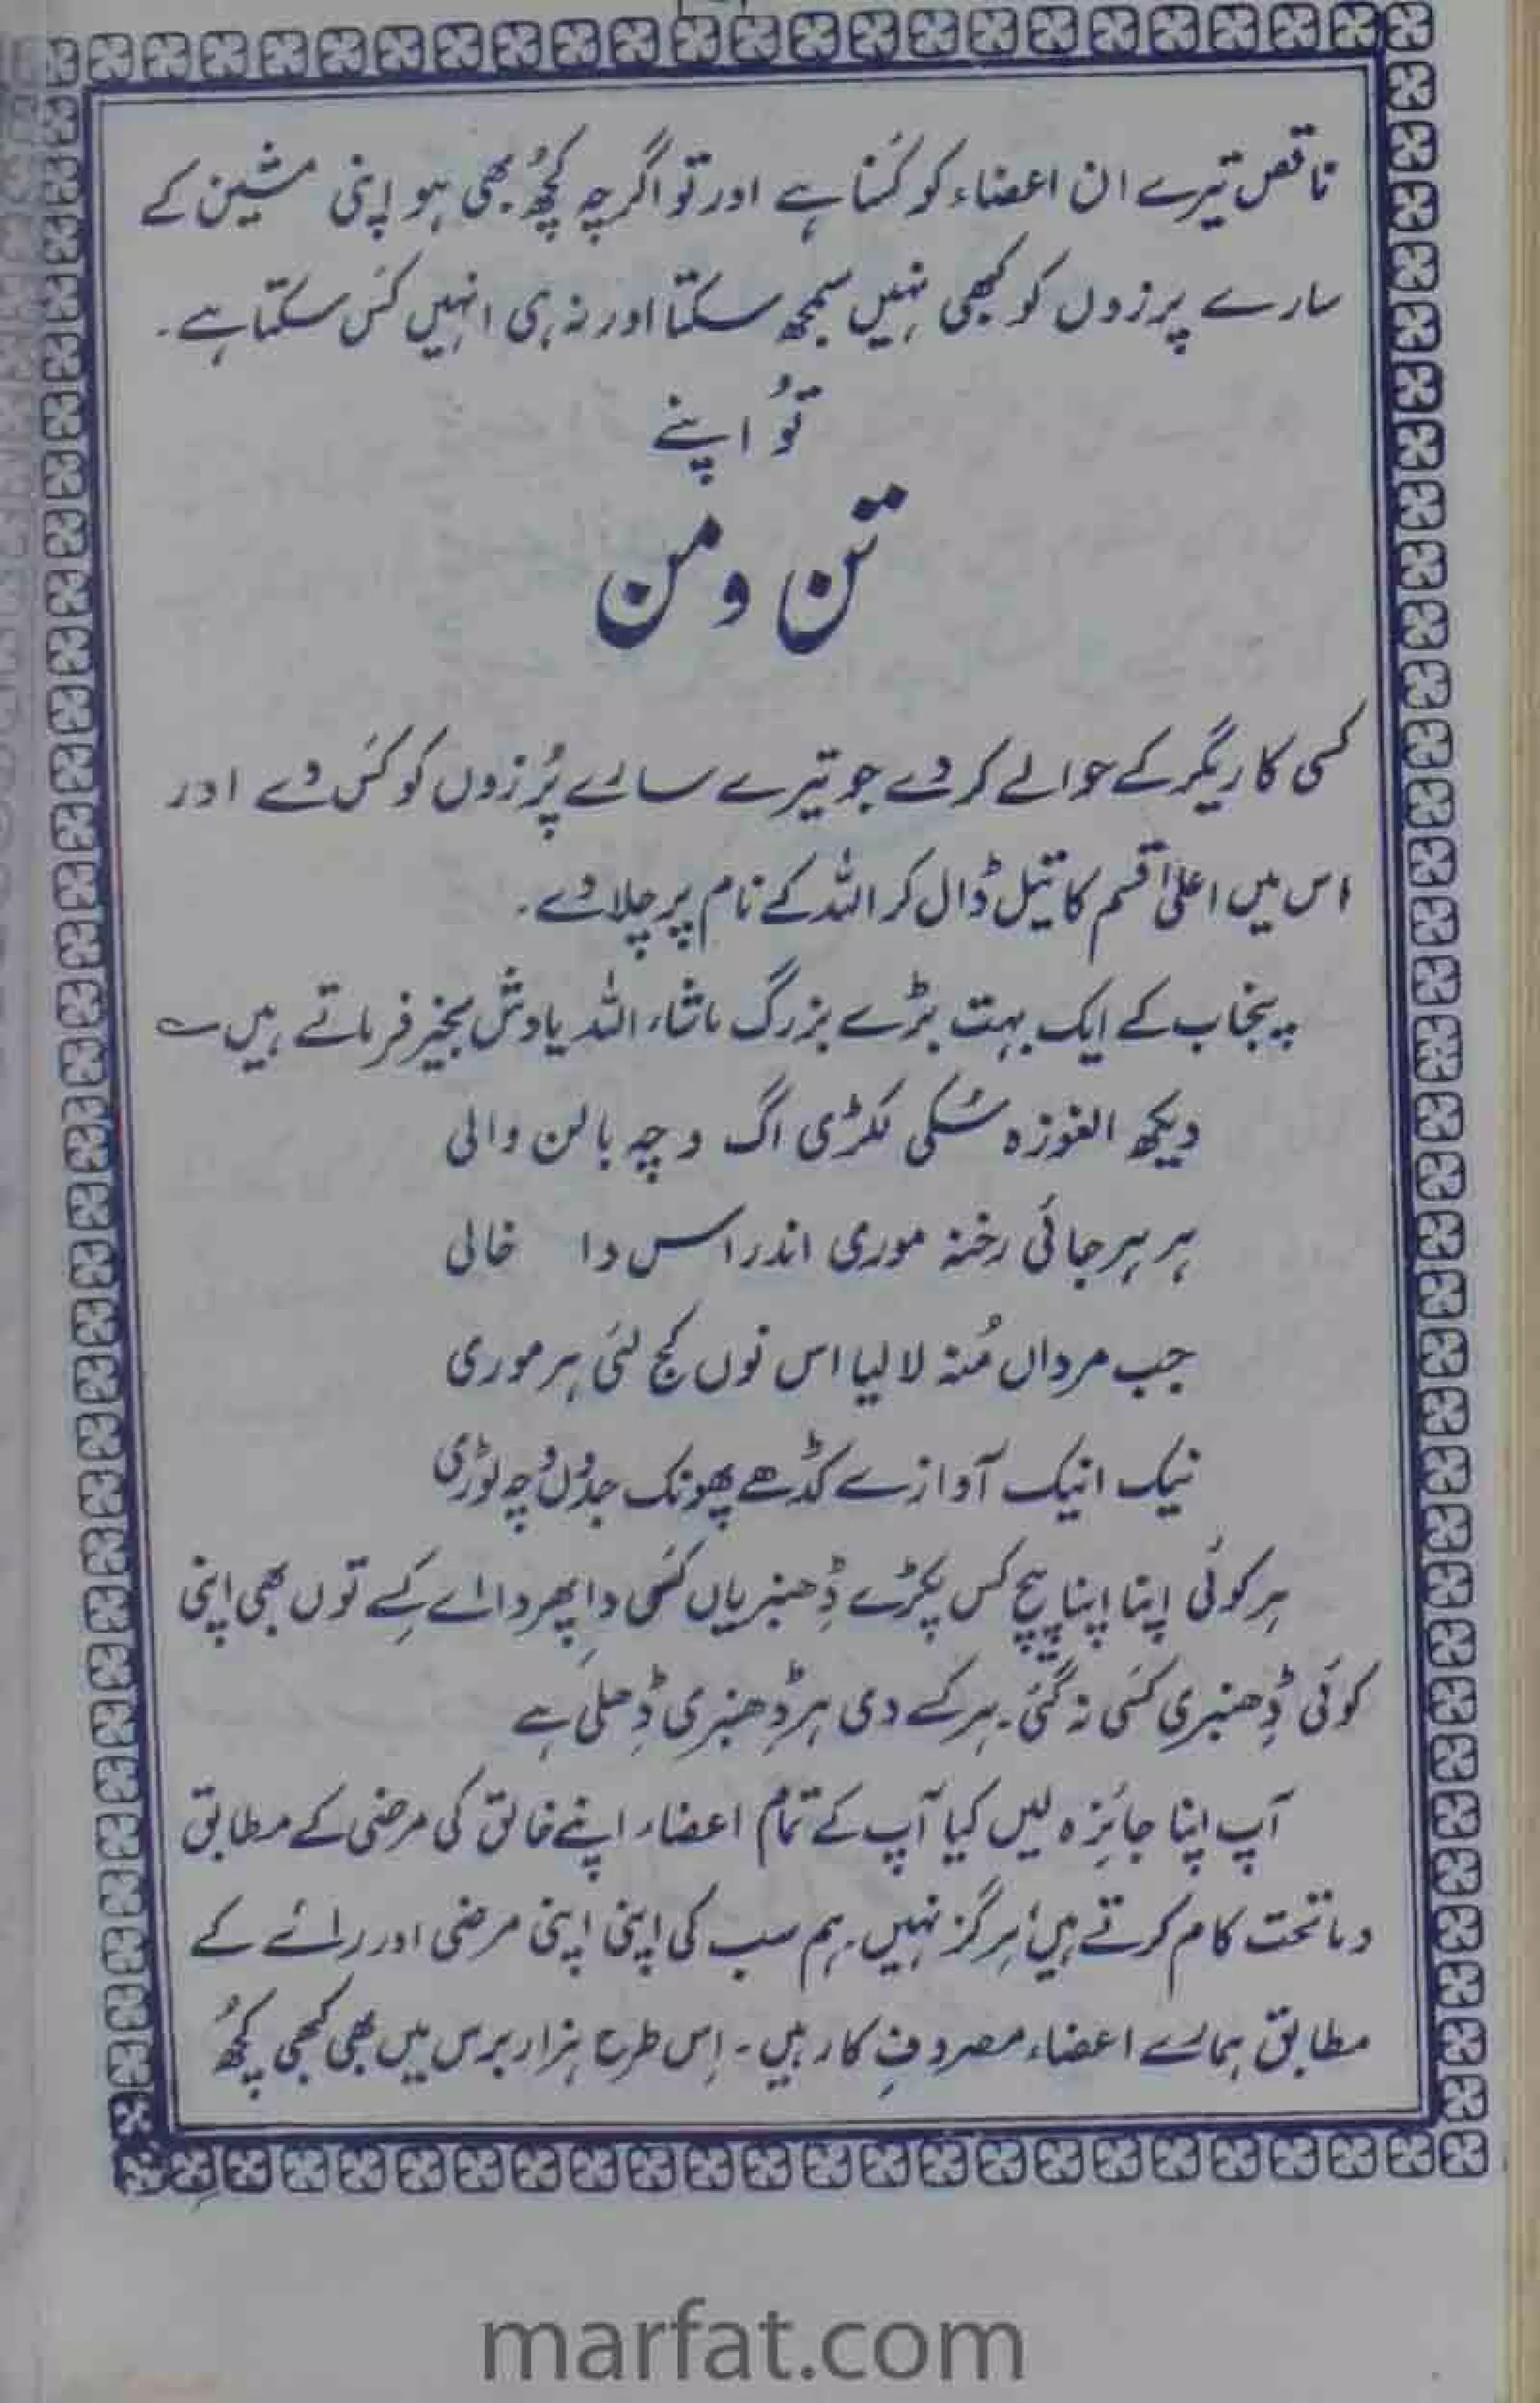 ناقص تیرے ان اعضاء کو کَسنا ہے اور تو اگرچہ کچھُ بھی ہو اپنی مشین کے
سارے پرزوں کو کبھی نہیں سمجھ سکتا اور نہ ہی انہیں کَس سکتا ہے۔
تُو اپنے
تن و من
کسی کاریگر کے حوالے کر دے جو تیرے سارے پُرزوں کو کَس دے اور
اس میں اعلیٰ قسم کا تیل ڈال کر اللہ کے نام پر چلا دے۔
پنجاب کے ایک بہت بڑے بزرگ ماشاء اللہ یادش بخیر فرماتے ہیں ؎
دیکھ الغوزہ سُکی لکڑی اگ وچہ بالن والی
ہر ہر جائی رخنہ موری اندر اس دا خالی
جب مرداں مُنہ لا لیا اس نوں کج لئی ہر موری
نیک انیک آوازے کڈھے پھونک جدُوں وچہ لوڑی
ہر کوئی اپنا اپنا پیچ کس پکڑے ڈِھنبریاں کَسی دا پھردا اے کِے توں بھی اپنی
کوئی ڈِھنبری کَسی نہ گئی۔ ہر کے دی ہر ڈِھنبری ڈِھلی ہے
آپ اپنا جائزہ لیں کیا آپ کے تمام اعضاء اپنے خالق کی مرضی کے مطابق
و ماتحت کام کرتے ہیں؟ ہرگز نہیں۔ ہم سب کی اپنی اپنی مرضی اور رائے کے
مطابق ہمارے اعضاء مصروفِ کار ہیں۔ اِس طرح ہزار برس میں بھی کبھی کچھُ
marfat.com